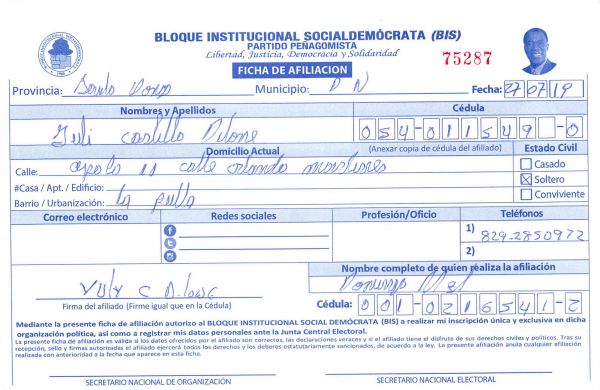 BLOQUE INSTITUCIONAL SOCIALDEMÓCRATA (BIS)
PARTIDO PEÑAGOMISTA
Libertad, Justicia, Democracia y Solidaridad
75287
FICHA DE AFILIACION
Provincia: Santo Domgo Municipio: D N Fecha: 27/07/19
Nombres y Apellidos Cédula
Yuli Castillo Pilone 054-0111549-0
Domicilio Actual (Anexar copia de cédula del afiliado) Estado Civil
Calle: apato 11 calle orlando Casado
#Casa / Apt. / Edificio: Soltero
Barrio / Urbanización: la Conviviente
Correo electrónico Redes sociales Profesión/Oficio Teléfonos
1) 829-2850972
2)
Nombre completo de quien realiza la afiliación
Firma del afiliado (Firme igual que en la Cédula)
Cédula: 001-0216541-2
Mediante la presente ficha de afiliación autorizo al BLOQUE INSTITUCIONAL SOCIAL DEMÓCRATA (BIS) a realizar mi inscripción única y exclusiva en dicha
organización política, así como a registrar mis datos personales ante la Junta Central Electoral.
La presente ficha de afiliación es válida si los datos ofrecidos por el afiliado son correctos, las declaraciones veraces y si el afiliado tiene el disfrute de sus derechos civiles y políticos. Tras su
recepción, sello y firmas autorizadas el afiliado ejercerá todos los derechos y los deberes estatutariamente sancionados, de acuerdo a la ley. La presente afiliación anula cualquier afiliación
realizada con anterioridad a la fecha que aparece en esta ficha.
SECRETARIO NACIONAL DE ORGANIZACIÓN SECRETARIO NACIONAL ELECTORAL